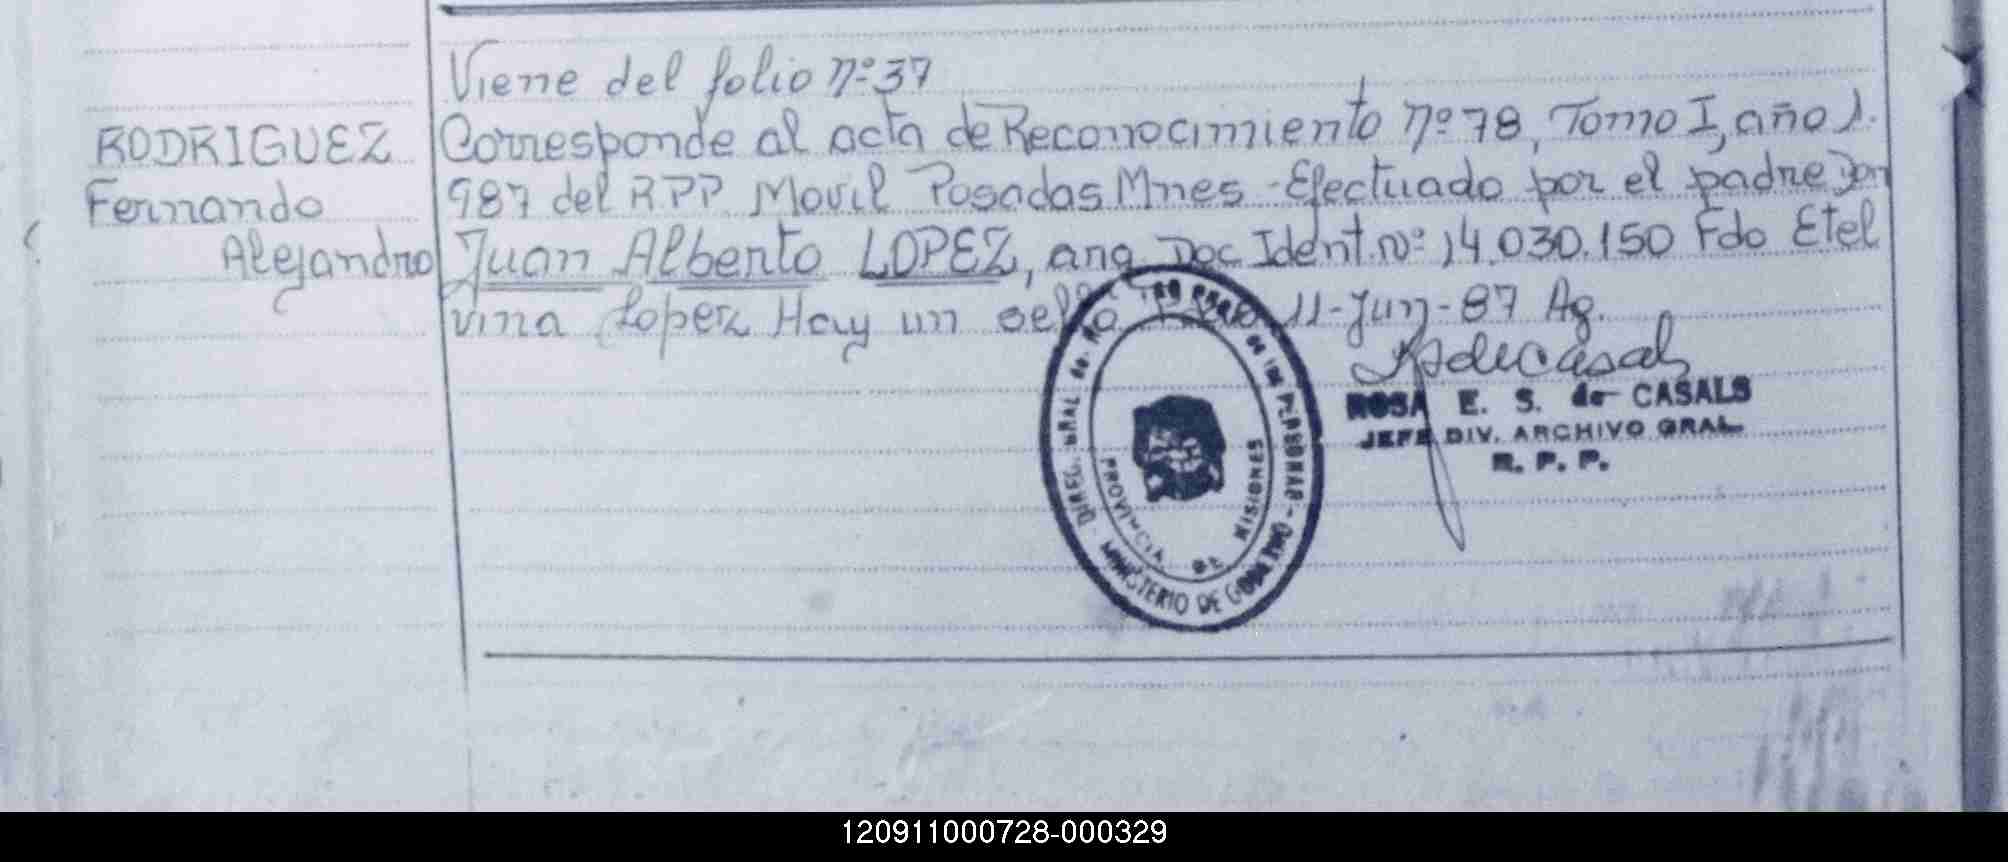 Viene del folio nº 37
RODRIGUEZ
Fernando
Alejandro
Corresponde al acta de Reconocimiento nº 78, Tomo I, año 1.
987 del R.P.P. Movil Posadas Mnes - Efectuado por el padre Don
Juan Alberto LOPEZ, arg. Doc. Ident. nº 14.030.150 Fdo Etel
vina Lopez Hay un sello 11-Jun-87 Ag.
ROSA E. S. de CASALS
JEFE DIV. ARCHIVO GRAL.
R. P. P.
DIREC. GRAL. de DE LAS PERSONAS - MINISTERIO DE GOBIERNO
PROVINCIA DE MISIONES
120911000728-000329